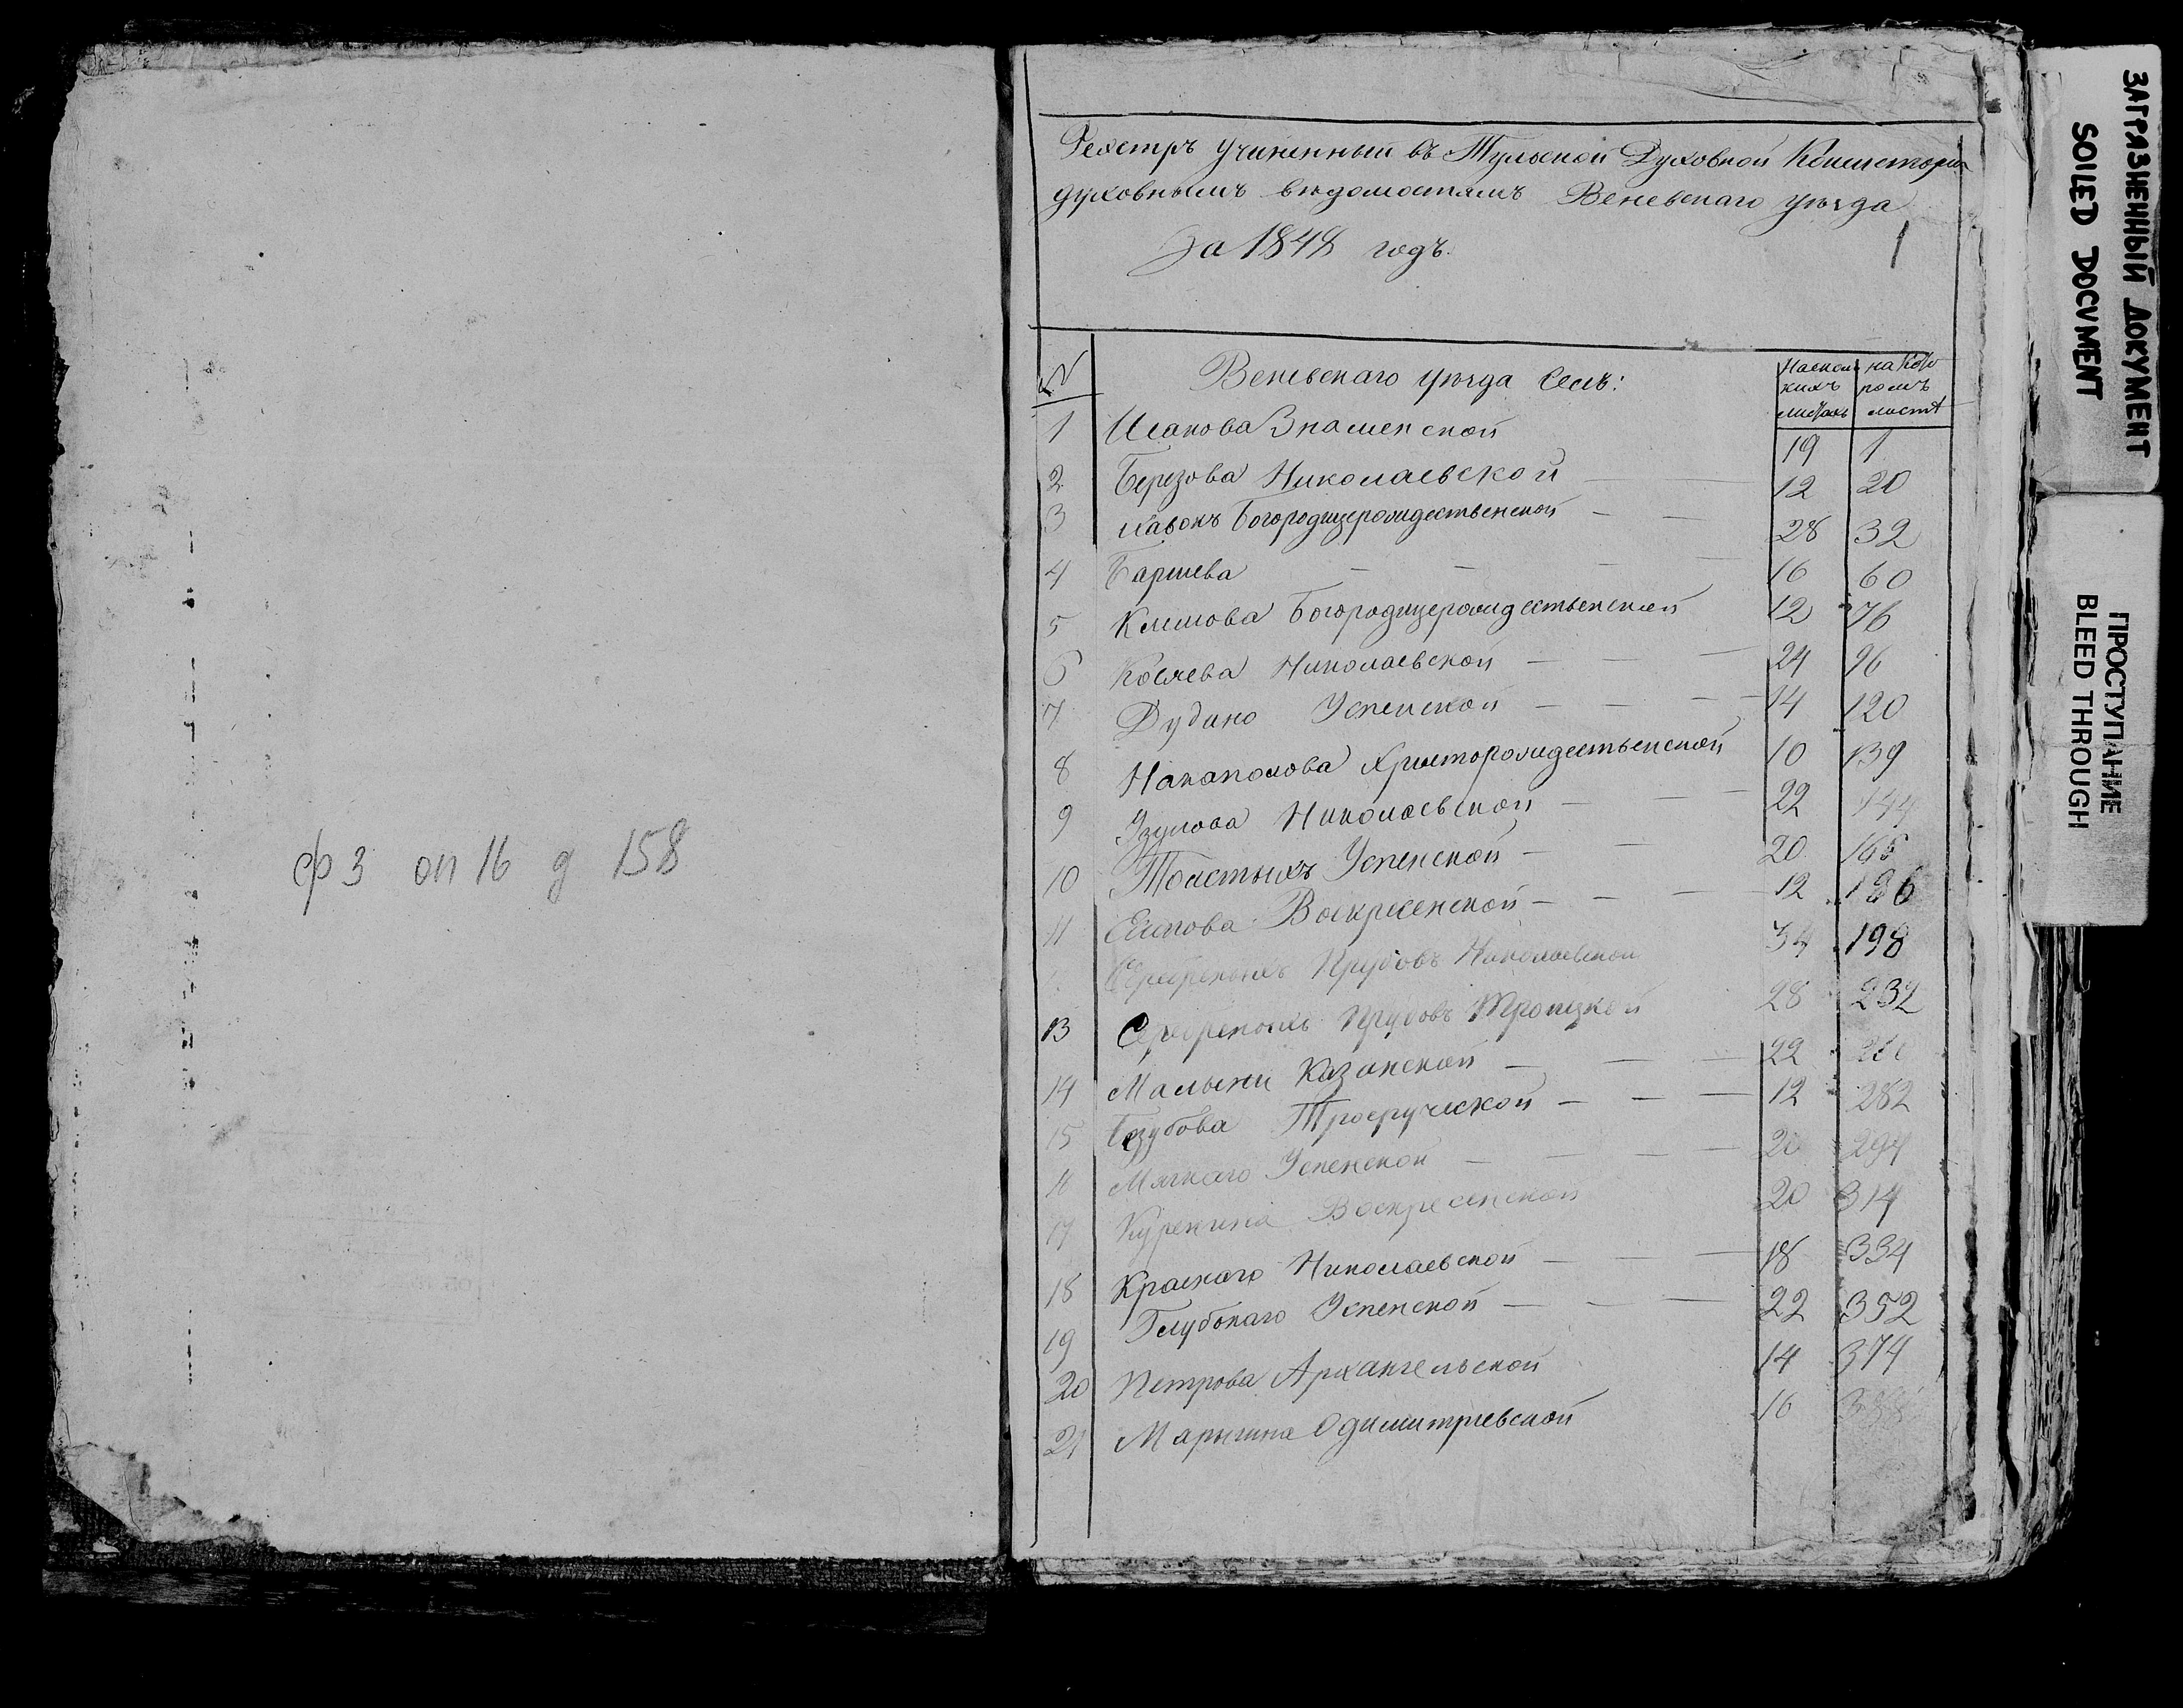 ф 3 оп 16 д 158
Реэстръ учиненный въ Тульской Духовной Консисторiи
духовнымъ вѣдомостямъ Веневскаго уѣзда
За 1848 годъ.
1
№ Веневскаго уѣзда Селъ: На сколькихъ листахъ на которомъ листѣ
1 Исакова Знаменской 19 1
2 Березова Николаевской 12 20
3 Лавокъ Богородицерождественской 28 32
4 Баршева 16 60
5 Климова Богородицерождественской 12 76
6 Косяева Николаевской 24 96
7 Дудино Успенской 14 120
8 Наканомова Христорождественской 10 139
9 Изумова Николаевской 22 144
10 Толстыхъ Успенской 20 165
11 Еипова Воскресенской 12 186
Серебреныхъ Прудовъ Николаевской 34 198
13 Серебреныхъ Прудовъ Троицкой 28 232
14 Малыни Казанской 22
15 Безубова Троеручиской 12 282
Мягкаго Успенской 20 294
17 Курекина Воскресенской 20 314
18 Краснаго Николаевской 18 334
19 Глубокаго Успенской 22 352
20 Петрова Архангельской 14 374
21 Марыгина Одимитриевской 16
ЗАГРЯЗНЕННЫЙ ДОКУМЕНТ
SOILED DOCUMENT
ПРОСТУПАНИЕ
BLEED THROUGH